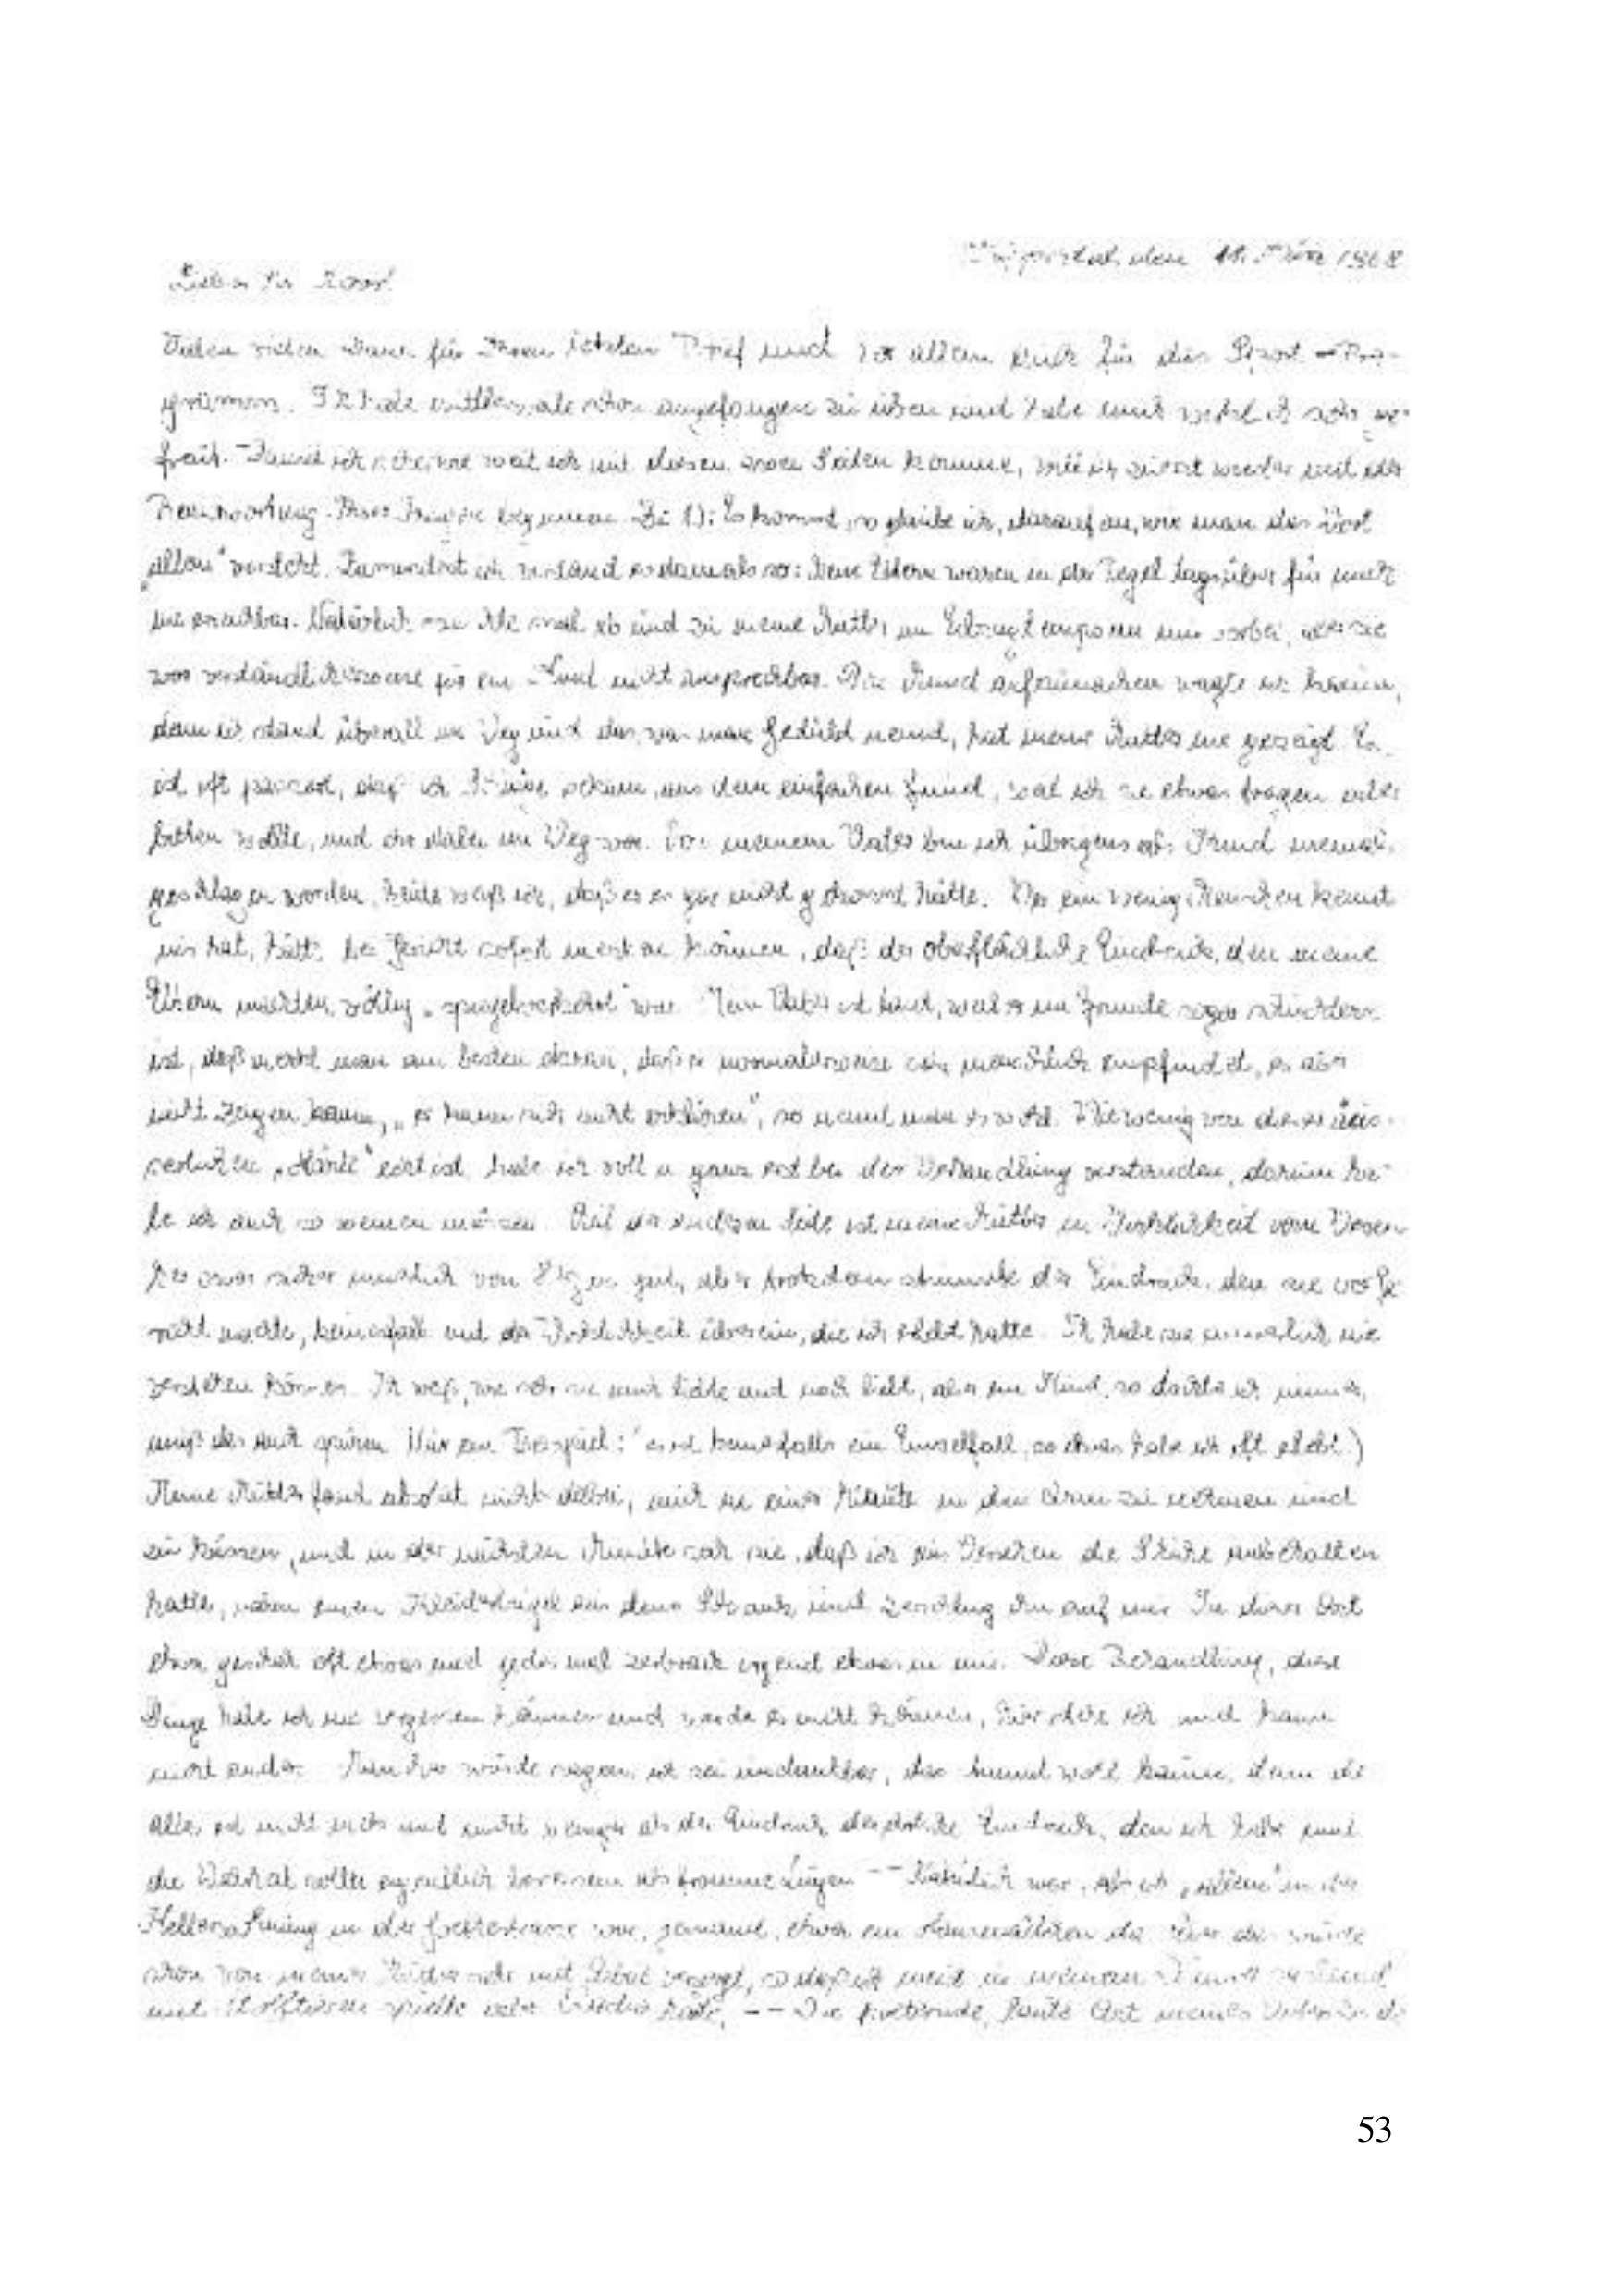 den 11. März 1968
Lieber
Vielen vielen Dank für Ihren letzten Brief und vor allem auch für das Sport-Pro-
gramm. Ich habe mittlerweile schon angefangen zu üben und habe mich wirklich sehr ge-
freut. Damit ich sehe, wie weit ich mit diesen zwei Seiten komme, will ich zuerst wieder mit der
Beantwortung Ihrer Fragen beginnen. Zu 1): Es kommt, so glaube ich, darauf an, wie man das Wort
„allein" versteht. Zumindest ich verstand es damals so: Meine Eltern waren in der Regel tagsüber für mich
nie erreichbar. Natürlich mal ab und zu meine Mutter im Eilzugtempo an mir vorbei, aber sie
war verständlicherweise für ein Kind nicht ansprechbar. Den Mund aufzumachen wagte ich kaum,
denn ich stand überall im Weg und das, was man Geduld nennt, hat meine Mutter nie gezeigt. Es
ist oft passiert, daß ich bekam, aus dem einfachen Grund, weil ich sie etwas fragen oder
bitten wollte, und ihr dabei im Weg war. Von meinem Vater bin ich übrigens als Kind niemals
geschlagen worden, heute weiß ich, daß er es gar nicht gekonnt hätte. Wer ein wenig Menschenkennt-
nis hat, hätte bei Gericht sofort merken können, daß der oberflächliche Eindruck, den meine
Eltern machten, völlig „spiegelverkehrt" war. Mein Vater ist laut, weil er im Grunde sogar schüchtern
ist, daß merkt man am besten daran, daß er normalerweise sehr menschlich empfindet, es aber
nicht zeigen kann, „er kann sich nicht erklären", so nennt man es wohl. Wie wenig von dieser äus-
serlichen „Härte" echt ist, habe ich voll u. ganz erst bei der Verhandlung verstanden, darum ha-
be ich auch so weinen müssen. Auf der anderen Seite ist meine Mutter in Wirklichkeit vom Wesen
her zwar sicher gut, aber trotzdem stimmte der Eindruck, den sie vor Ge-
richt machte, keinesfalls mit der Wirklichkeit überein, die ich erlebt hatte. Ich habe sie nie
verstehen können. Ich weiß, wie sehr sie mich liebte und noch liebt, aber ein Kind, so dachte ich immer,
muß das auch spüren. Nur ein Beispiel: (es ist keinesfalls ein Einzelfall, so etwas habe ich oft erlebt)
Meine Mutter fand absolut nichts dabei, mich in einer Minute in den Arm zu nehmen und
zu küssen, und in der nächsten Minute sah sie, daß ich aus Versehen die Schuhe anbehalten
hatte, nahm einen Kleiderbügel aus dem Schrank und zerschlug ihn auf mir. In dieser Art
etwa geschah oft etwas und jedes mal zerbrach irgend etwas in mir. Diese Behandlung, diese
Dinge habe ich nie vergessen können und werde es nicht können, hier stehe ich und kann
nicht anders. Mancher würde sagen, ich sei undankbar, das stimmt wohl kaum, denn dies
alles ist nicht mehr und nicht weniger als der Eindruck, der Eindruck, den ich habe und
die Wahrheit sollte eigentlich besser sein als fromme Lügen. -- Natürlich war, als ich „allein" in der
in der war, jemand, etwa ein
schon von meiner mit Arbeit versorgt, so daß ich meist in meinem
mit Stofftieren spielte oder -- Die polternde, laute Art meines
53